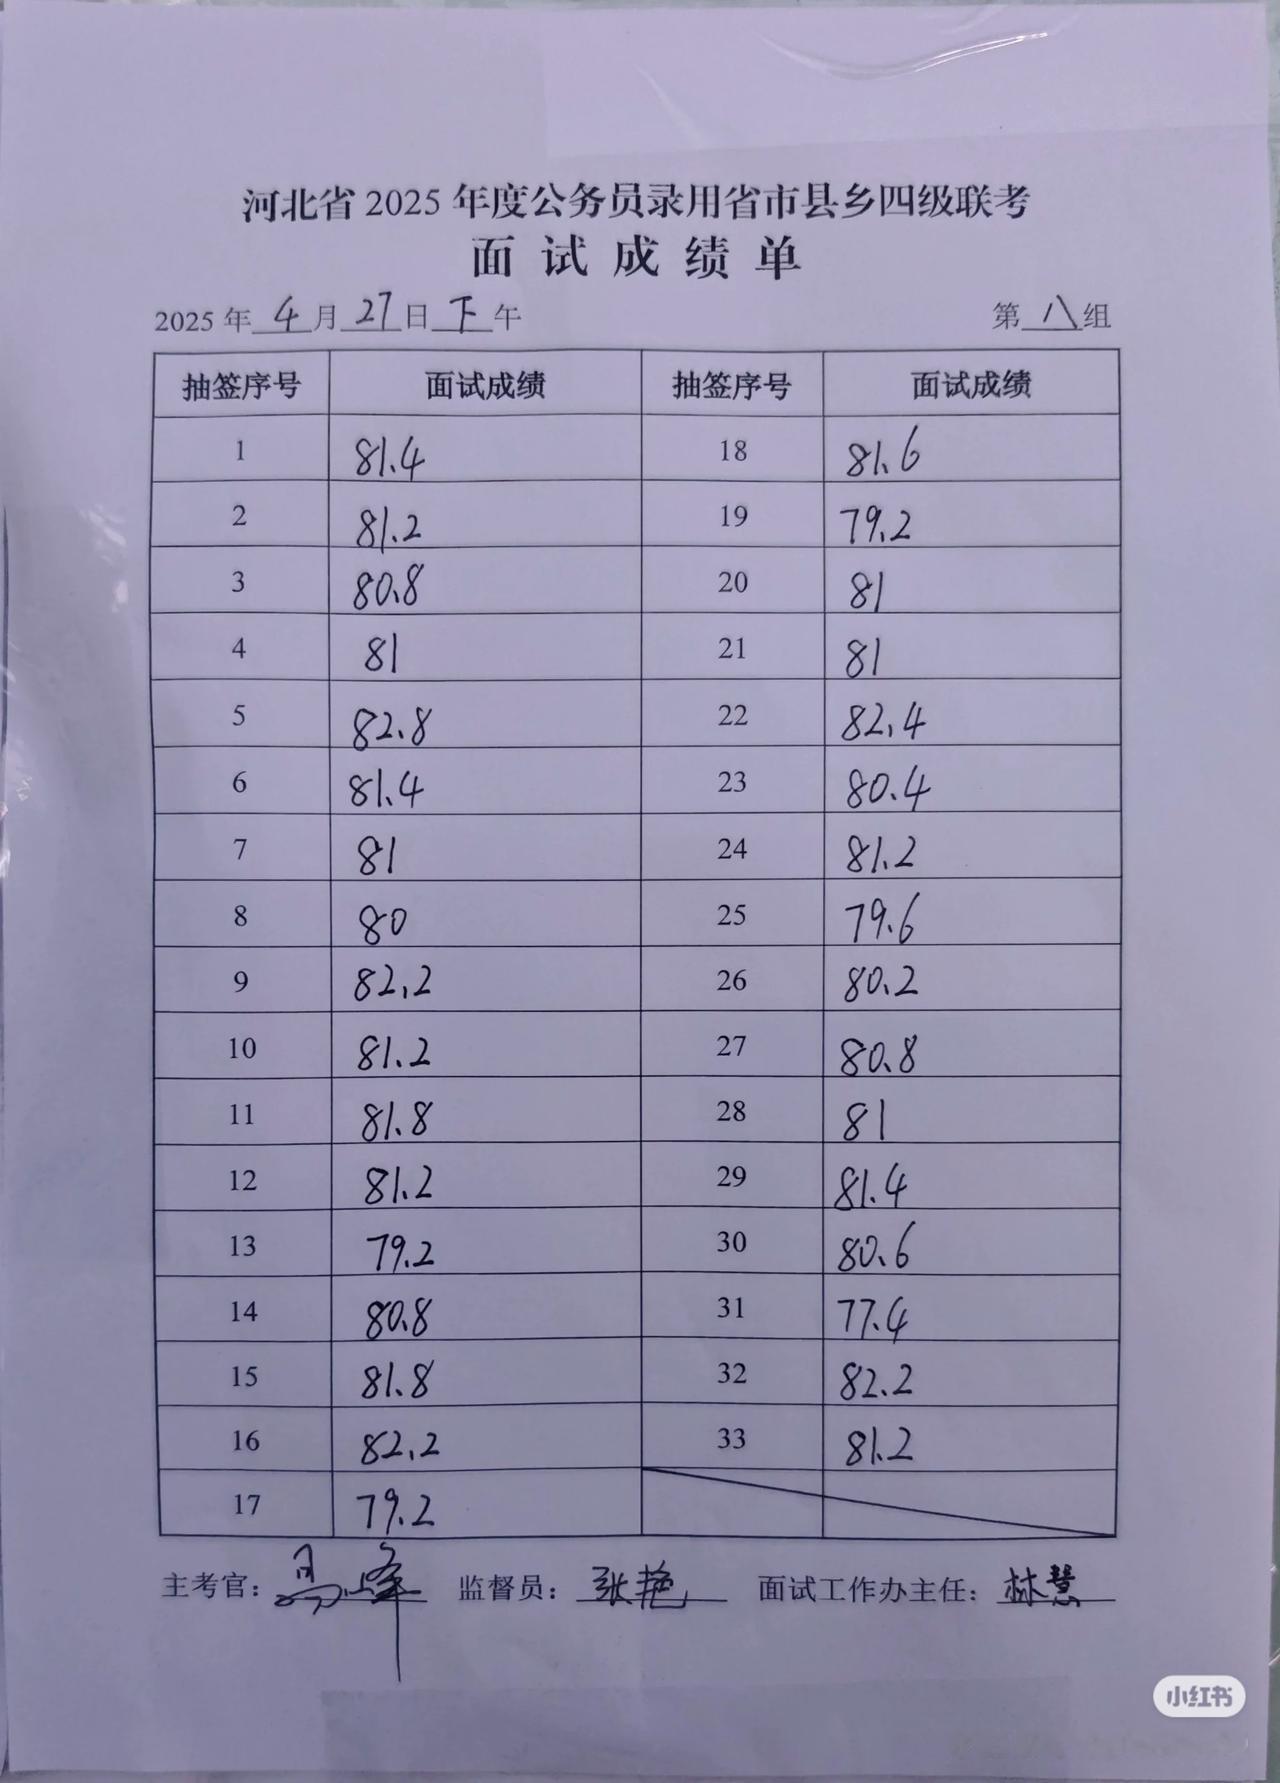 河北省2025年度公务员录用省市县乡四级联考
面试成绩单
2025年4月27日下午 第八组
抽签序号 面试成绩 抽签序号 面试成绩
1 81.4 18 81.6
2 81.2 19 79.2
3 80.8 20 81
4 81 21 81
5 82.8 22 82.4
6 81.4 23 80.4
7 81 24 81.2
8 80 25 79.6
9 82.2 26 80.2
10 81.2 27 80.8
11 81.8 28 81
12 81.2 29 81.4
13 79.2 30 80.6
14 80.8 31 77.4
15 81.8 32 82.2
16 82.2 33 81.2
17 79.2
主考官: 监督员:张艳 面试工作办主任:林慧
小红书